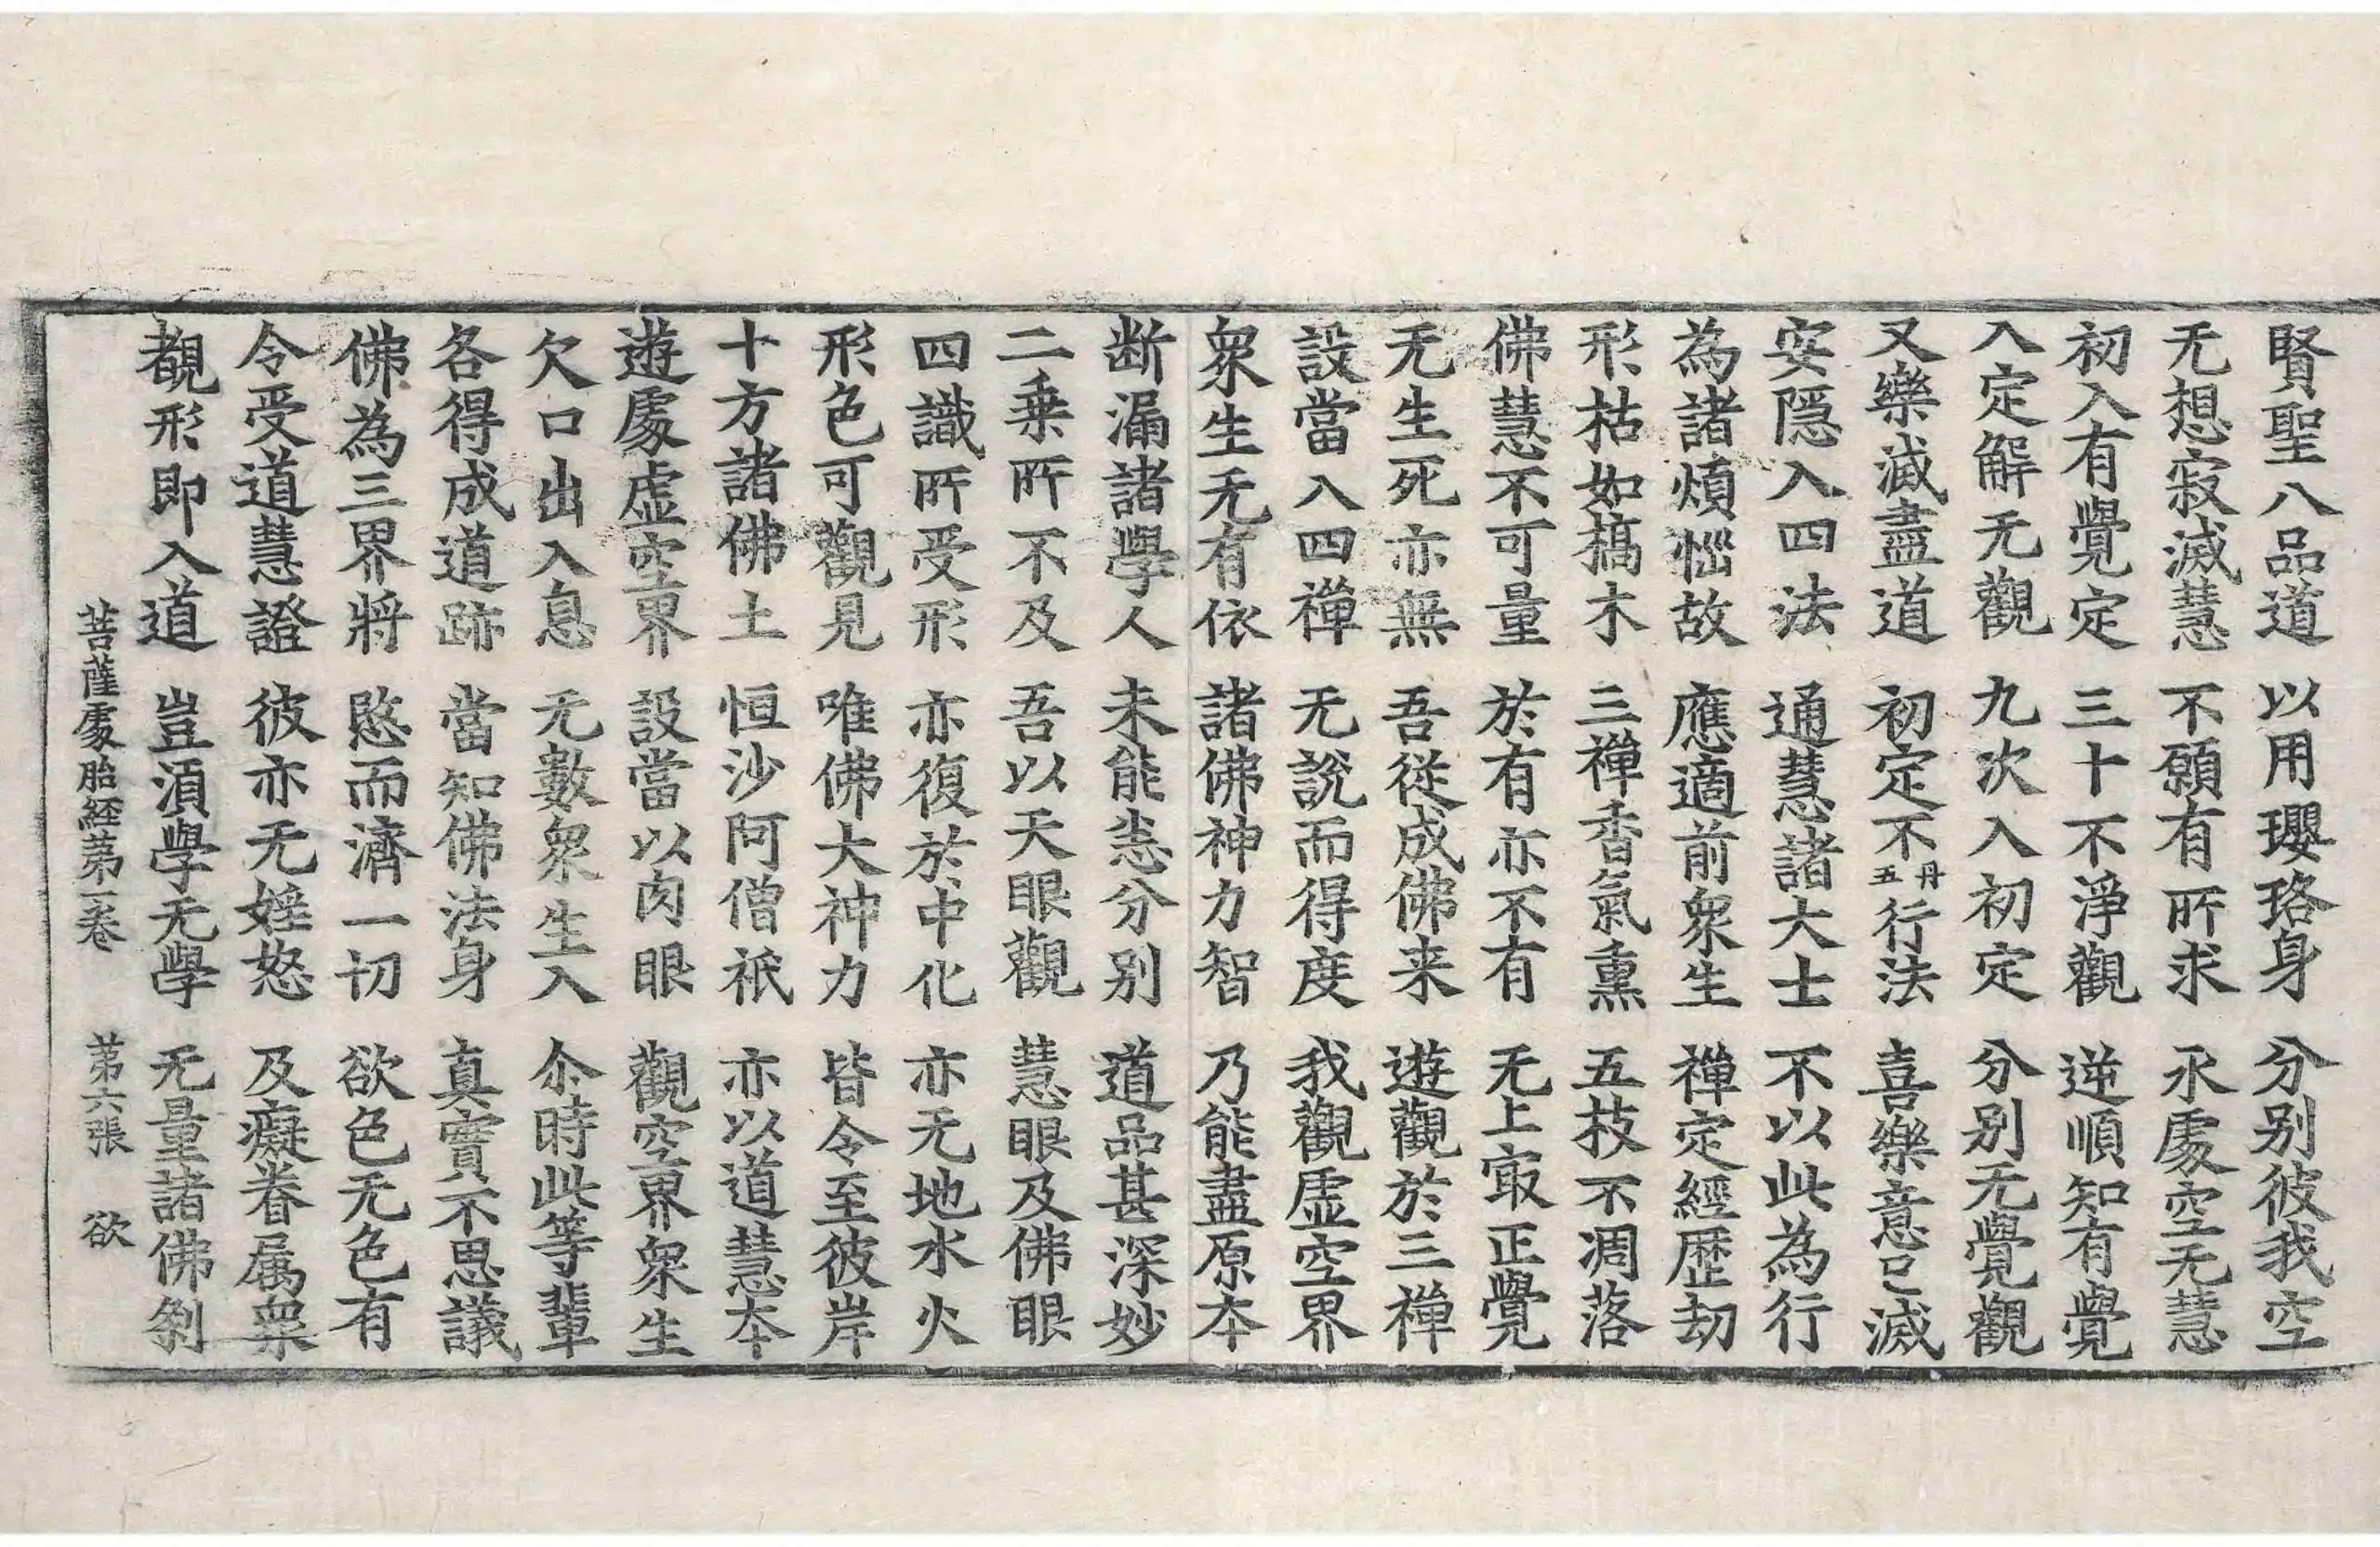 賢聖八品道 以用瓔珞身 分別彼我空
无想寂滅慧 不願有所求 永處空无慧
初入有覺定 三十不淨觀 逆順知有覺
入定解无觀 九次入初定 分別无覺觀
又樂滅盡道 初定不丹五行法 喜樂意已滅
安隱入四法 通慧諸大士 不以此為行
為諸煩惱故 應適前衆生 禪定經歷劫
形枯如槁木 三禪香氣熏 五技不凋落
佛慧不可量 於有亦不有 无上㝡正覺
无生死亦無 吾從成佛来 遊觀於三禪
設當八四禪 无說而得度 我觀虛空界
衆生无有依 諸佛神力智 乃能盡原本
断漏諸學人 未能悉分別 道品甚深妙
二乗所不及 吾以天眼觀 慧眼及佛眼
四識所受形 亦復於中化 亦无地水火
形色可觀見 唯佛大神力 皆令至彼岸
十方諸佛土 恒沙阿僧祇 亦以道慧本
遊處虛空界 設當以肉眼 觀空界衆生
欠口出入息 无數衆生入 尒時此等輩
各得成道跡 當知佛法身 真實不思議
佛為三界將 愍而濟一切 欲色无色有
令受道慧證 彼亦无婬怒 及癡眷属衆
覩形即入道 豈湏學无學 无量諸佛剎
菩薩處胎經苐一卷 苐六張 欲